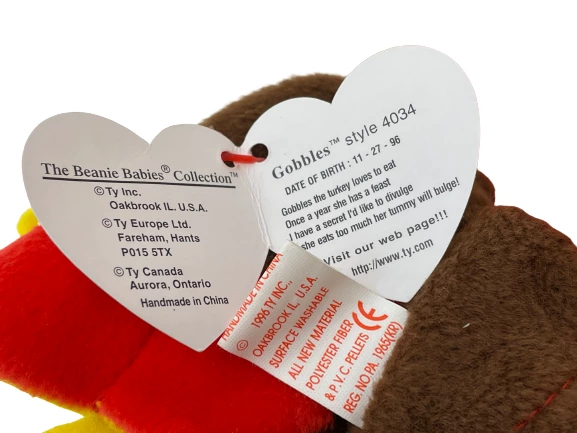 The Beanie Babies® Collection™
©Ty Inc.
Oakbrook IL. U.S.A.
©Ty Europe Ltd.
Fareham, Hants
P015 5TX
©Ty Canada
Aurora, Ontario
Handmade in China
Gobbles™ style 4034
DATE OF BIRTH : 11 - 27 - 96
Gobbles the turkey loves to eat
Once a year she has a feast
I have a secret I'd like to divulge
she eats too much her tummy will bulge!
Visit our web page!!!
http://www.ty.com
HANDMADE IN CHINA
© 1996 TY INC.,
OAKBROOK IL, U.S.A.
SURFACE WASHABLE
ALL NEW MATERIAL
POLYESTER FIBER
& P.V.C. PELLETS CE
REG. NO.PA. 1965(KR)